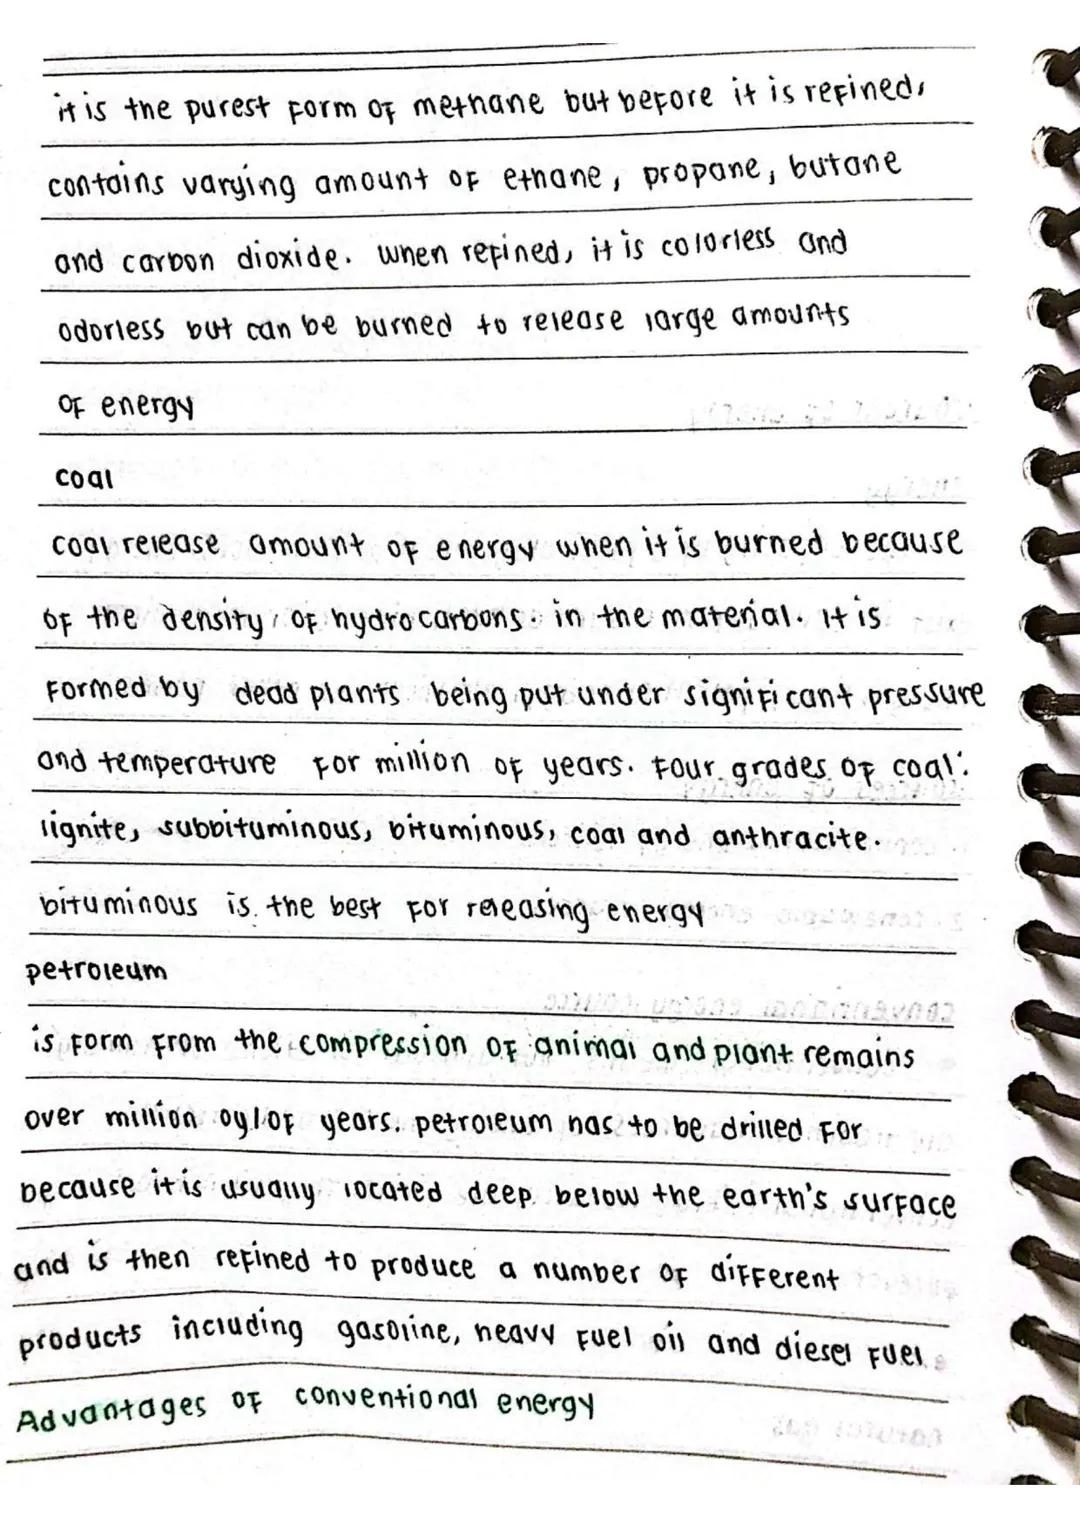 it is the purest form of methane but before it is refined,
contains varying amount of ethane, propane, butane
and carbon dioxide. when refined, it is colorless and
odorless but can be burned to release large amounts
of energy
coal
coal release amount of energy when it is burned because
of the density of hydrocarbons. in the material. It is
formed by dead plants being put under significant pressure
and temperature for million of years. Four grades of coal:
lignite, subbituminous, bituminous, coal and anthracite.
bituminous is the best for releasing energy
petroleum
is form from the compression of animal and plant remains
over million of years. petroleum has to be drilled for
because it is usually located deep below the earth's surface
and is then refined to produce a number of different
products including gasoline, heavy fuel oil and diesel fuel
Advantages of conventional energy